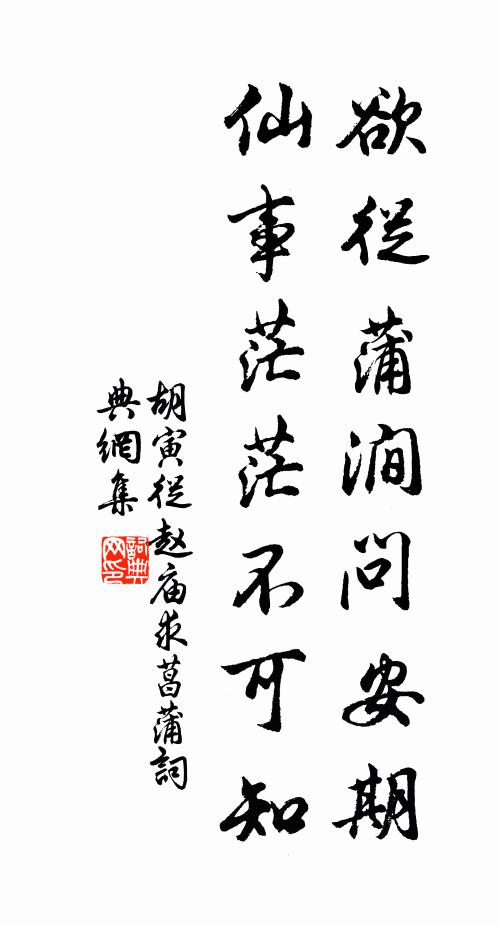 欲從蒲澗問安期
仙事茫茫不可知
胡寅從赵庙求菖蒲詞
典網集
詞典网印